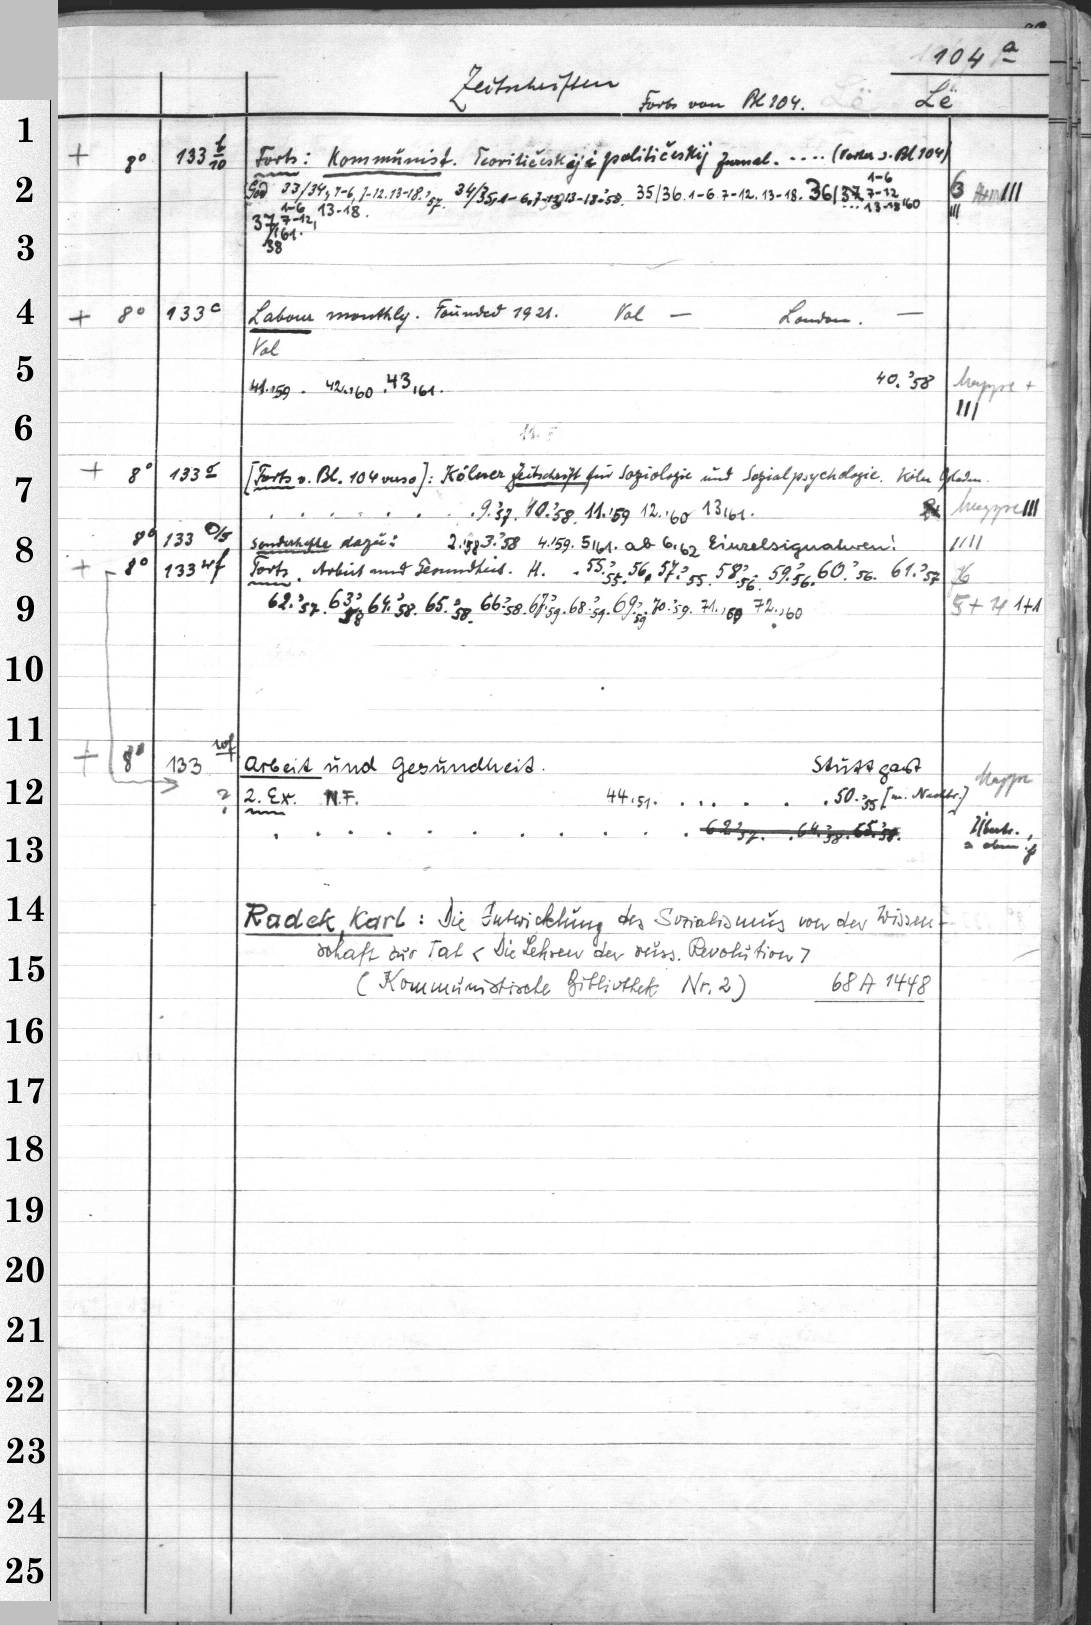 104 a
Zeitschriften
Forts von Bl 104. Lë
1
+ 8° 133 t/10 Forts: Kommunist. Teoritičeskij i političeskij žurnal. .... (Vorher s. Bl 104)
2
God 33/34, 1-6, 7-12. 13-18.'57. 34/35, 1-6, 7-12, 13-18-'58. 35/36. 1-6. 7-12. 13-18. 36/37 1-6 7-12 13-18,'60 III
37, 1-6 7-12, 13-18.
3
/'61.
38
4
+ 8° 133 c Labour monthly. Founded 1921. Vol — London. —
Vol
5
41.'59. 42.'60. 43,'61. 40.'58 Mappe +
III
6
7
+ 8° 133 d [Forts v. Bl. 104 verso]: Kölner Zeitschrift für Soziologie und Sozialpsychologie. Köln Opladen.
. . . . . . . 9.'57. 10.'58. 11.'59 12.'60 13,'61. Mappe III
8
8° 133 D/5 Sonderhefte dazu: 2.'58 3.'58 4.'59. 5,'61. ab 6,'62 Einzelsignaturen! IIII
+ 8° 133 wf Forts. Arbeit und Gesundheit. H. . 55.'55. 56, 57.'55. 58.'56. 59.'56. 60.'56. 61.'57
9
62.'57. 63.'58 64.'58. 65.'58. 66.'58. 67.'59. 68.'59. 69.'59 70.'59. 71.'60 72.'60 5+4 1+1
10
11
+ 8° 133 wf Arbeit und Gesundheit. Stuttgart
12
? 2. Ex. N.F. 44.'51. . . . . . 50.'55 [m. Nachtr.] Mappe
. . . . . . . . . . . 62.'57. . 64.'58. 65.'58.
13
14
Radek, Karl: Die Entwicklung des Sozialismus von der Wissen-
schaft zur Tat < Die Lehren der russ. Revolution >
15
(Kommunistische Bibliothek Nr. 2) 68 A 1448
16
17
18
19
20
21
22
23
24
25